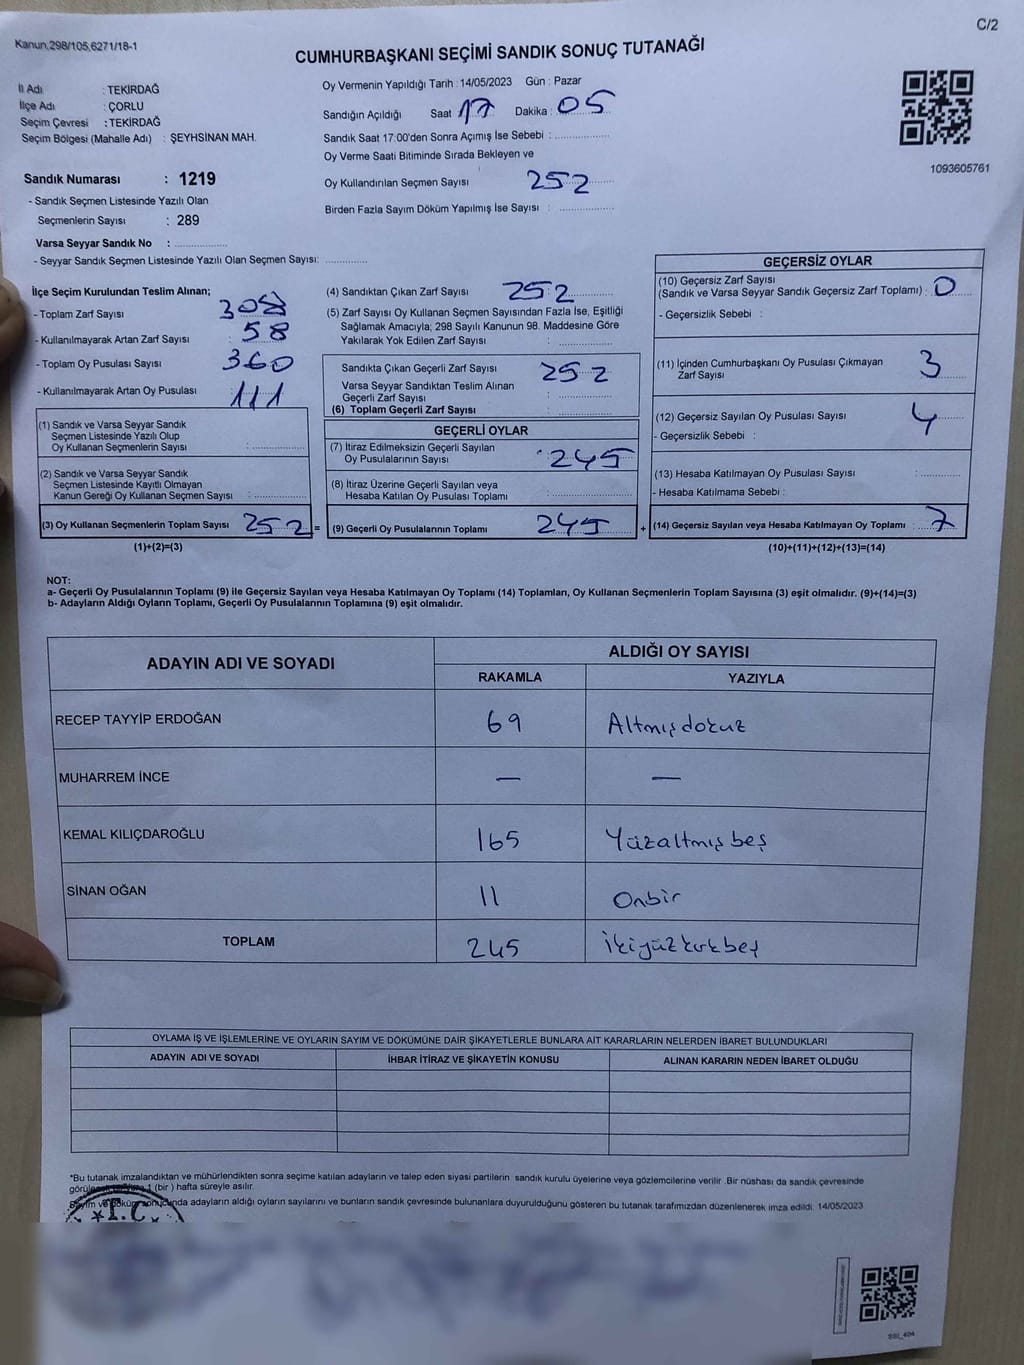 C/2
Kanun,298/105,6271/18-1
CUMHURBAŞKANI SEÇİMİ SANDIK SONUÇ TUTANAĞI
İl Adı : TEKİRDAĞ
İlçe Adı : ÇORLU
Seçim Çevresi : TEKİRDAĞ
Seçim Bölgesi (Mahalle Adı) : ŞEYHSİNAN MAH.
Sandık Numarası : 1219
- Sandık Seçmen Listesinde Yazılı Olan
Seçmenlerin Sayısı : 289
Varsa Seyyar Sandık No : ....................
- Seyyar Sandık Seçmen Listesinde Yazılı Olan Seçmen Sayısı: ..............
Oy Vermenin Yapıldığı Tarih : 14/05/2023 Gün : Pazar
Sandığın Açıldığı Saat 17 Dakika : 05
Sandık Saat 17:00'den Sonra Açımış İse Sebebi : ..................
Oy Verme Saati Bitiminde Sırada Bekleyen ve
Oy Kullandırılan Seçmen Sayısı 252
Birden Fazla Sayım Döküm Yapılmış İse Sayısı : ..................
1093605761
İlçe Seçim Kurulundan Teslim Alınan;
- Toplam Zarf Sayısı
- Kullanılmayarak Artan Zarf Sayısı : 58
- Toplam Oy Pusulası Sayısı 360
- Kullanılmayarak Artan Oy Pusulası : 111
(1) Sandık ve Varsa Seyyar Sandık
Seçmen Listesinde Yazılı Olup
Oy Kullanan Seçmenlerin Sayısı : ..................
(2) Sandık ve Varsa Seyyar Sandık
Seçmen Listesinde Kayıtlı Olmayan
Kanun Gereği Oy Kullanan Seçmen Sayısı : ..................
(3) Oy Kullanan Seçmenlerin Toplam Sayısı 252 =
(1)+(2)=(3)
(4) Sandıktan Çıkan Zarf Sayısı 252
(5) Zarf Sayısı Oy Kullanan Seçmen Sayısından Fazla İse, Eşitliği
Sağlamak Amacıyla; 298 Sayılı Kanunun 98. Maddesine Göre
Yakılarak Yok Edilen Zarf Sayısı : ..................
Sandıkta Çıkan Geçerli Zarf Sayısı 252
Varsa Seyyar Sandıktan Teslim Alınan
Geçerli Zarf Sayısı : ..................
(6) Toplam Geçerli Zarf Sayısı : ..................
GEÇERLİ OYLAR
(7) İtiraz Edilmeksizin Geçerli Sayılan
Oy Pusulalarının Sayısı 245
(8) İtiraz Üzerine Geçerli Sayılan veya
Hesaba Katılan Oy Pusulası Toplamı : ..................
(9) Geçerli Oy Pusulalarının Toplamı 245 +
GEÇERSİZ OYLAR
(10) Geçersiz Zarf Sayısı
(Sandık ve Varsa Seyyar Sandık Geçersiz Zarf Toplamı) : 0
- Geçersizlik Sebebi :
(11) İçinden Cumhurbaşkanı Oy Pusulası Çıkmayan
Zarf Sayısı 3
(12) Geçersiz Sayılan Oy Pusulası Sayısı 4
- Geçersizlik Sebebi :
(13) Hesaba Katılmayan Oy Pusulası Sayısı : ..................
- Hesaba Katılmama Sebebi :
(14) Geçersiz Sayılan veya Hesaba Katılmayan Oy Toplamı : 7
(10)+(11)+(12)+(13)=(14)
NOT:
a- Geçerli Oy Pusulalarının Toplamı (9) ile Geçersiz Sayılan veya Hesaba Katılmayan Oy Toplamı (14) Toplamları, Oy Kullanan Seçmenlerin Toplam Sayısına (3) eşit olmalıdır. (9)+(14)=(3)
b- Adayların Aldığı Oyların Toplamı, Geçerli Oy Pusulalarının Toplamına (9) eşit olmalıdır.
ADAYIN ADI VE SOYADI ALDIĞI OY SAYISI
RAKAMLA YAZIYLA
RECEP TAYYİP ERDOĞAN 69 Altmışdokuz
MUHARREM İNCE — —
KEMAL KILIÇDAROĞLU 165 Yüzaltmışbeş
SİNAN OĞAN 11 Onbir
TOPLAM 245 İkiyüzkırkbeş
OYLAMA İŞ VE İŞLEMLERİNE VE OYLARIN SAYIM VE DÖKÜMÜNE DAİR ŞİKAYETLERLE BUNLARA AİT KARARLARIN NELERDEN İBARET BULUNDUKLARI
ADAYIN ADI VE SOYADI İHBAR İTİRAZ VE ŞİKAYETİN KONUSU ALINAN KARARIN NEDEN İBARET OLDUĞU
*Bu tutanak imzalandıktan ve mühürlendikten sonra seçime katılan adayların ve talep eden siyasi partilerin sandık kurulu üyelerine veya gözlemcilerine verilir. Bir nüshası da sandık çevresinde
1 (bir) hafta süreyle asılır.
Sayım ve döküm sonucunda adayların aldığı oyların sayılarını ve bunların sandık çevresinde bulunanlara duyurulduğunu gösteren bu tutanak tarafımızdan düzenlenerek imza edildi. 14/05/2023
T.C.